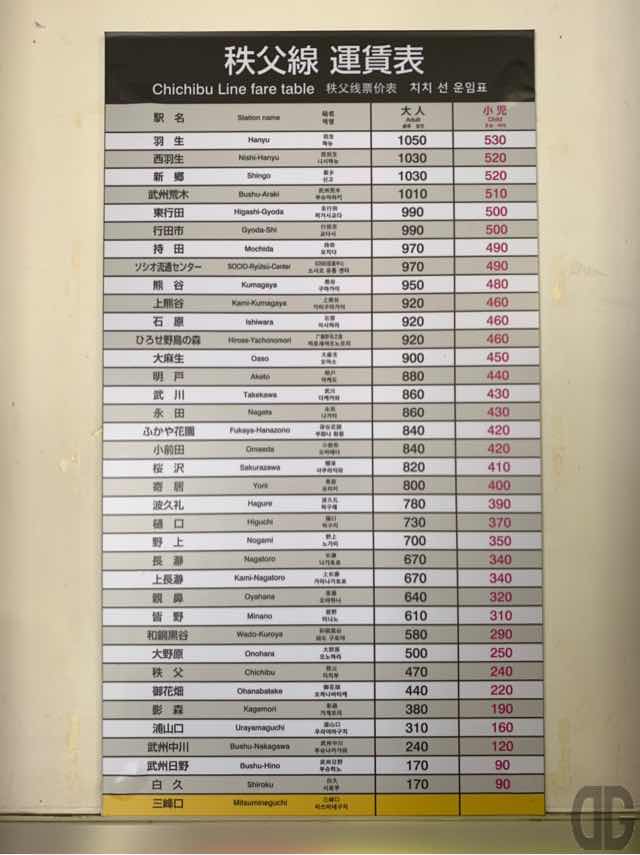 秩父線 運賃表
Chichibu Line fare table 秩父线票价表 치치 선 운임표
駅名 Station name 站名 역명 大人 Adult 小児 Child
羽生 Hanyu 羽生 하뉴 1050 530
西羽生 Nishi-Hanyu 西羽生 니시하뉴 1030 520
新郷 Shingo 新乡 신고 1030 520
武州荒木 Bushu-Araki 武州荒木 부슈아라키 1010 510
東行田 Higashi-Gyoda 东行田 히가시교다 990 500
行田市 Gyoda-Shi 行田市 교다시 990 500
持田 Mochida 持田 모치다 970 490
ソシオ流通センター SOCIO-Ryūtsū-Center 소시오 유통 센터 970 490
熊谷 Kumagaya 熊谷 구마가야 950 480
上熊谷 Kami-Kumagaya 上熊谷 가미구마가야 920 460
石原 Ishiwara 石原 이시와라 920 460
ひろせ野鳥の森 Hirose-Yachonomori 히로세야초노모리 920 460
大麻生 Oaso 大麻生 오아소 900 450
明戸 Aketo 明户 아케토 880 440
武川 Takekawa 武川 다케카와 860 430
永田 Nagata 永田 나가타 860 430
ふかや花園 Fukaya-Hanazono 深谷花园 840 420
小前田 Omaeda 小前田 오마에다 840 420
桜沢 Sakurazawa 樱泽 사쿠라자와 820 410
寄居 Yorii 寄居 요리이 800 400
波久礼 Hagure 波久礼 하구레 780 390
樋口 Higuchi 樋口 히구치 730 370
野上 Nogami 野上 노가미 700 350
長瀞 Nagatoro 长瀞 나가토로 670 340
上長瀞 Kami-Nagatoro 上长瀞 가미나가토로 670 340
親鼻 Oyahana 亲鼻 오야하나 640 320
皆野 Minano 皆野 미나노 610 310
和銅黒谷 Wado-Kuroya 和铜黑谷 와도 구로야 580 290
大野原 Onohara 大野原 오노하라 500 250
秩父 Chichibu 秩父 치치부 470 240
御花畑 Ohanabatake 御花畑 오하나바타케 440 220
影森 Kagemori 影森 가게모리 380 190
浦山口 Urayamaguchi 浦山口 우라야마구치 310 160
武州中川 Bushu-Nakagawa 武州中川 부슈나카가와 240 120
武州日野 Bushu-Hino 武州日野 부슈히노 170 90
白久 Shiroku 白久 시로쿠 170 90
三峰口 Mitsumineguchi 三峰口 미쓰미네구치